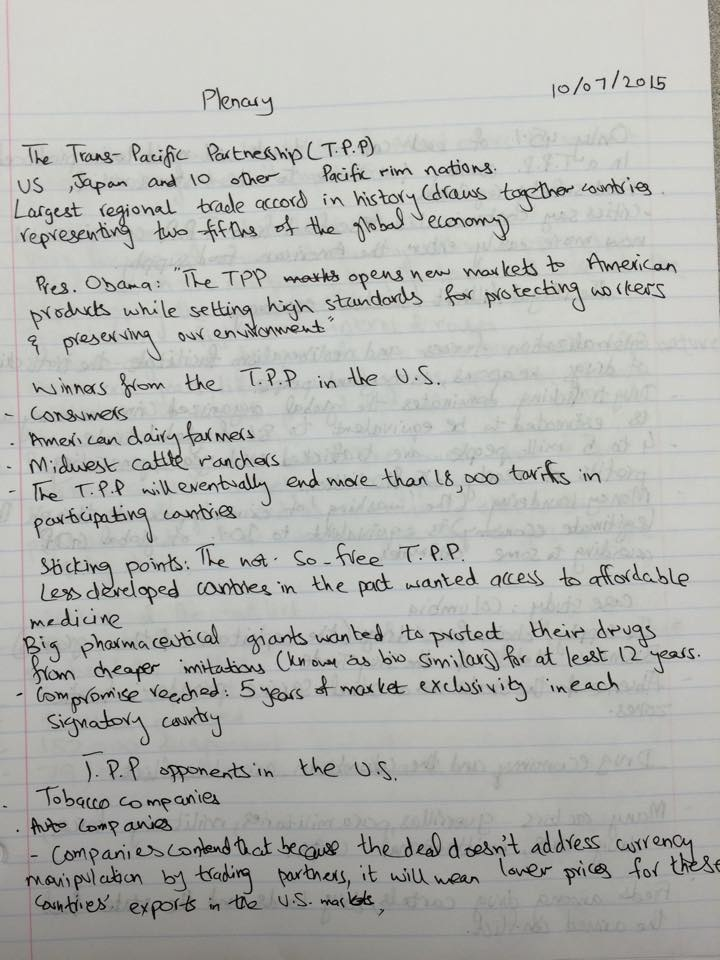 Plenary
10/07/2015
The Trans-Pacific Partnership (T.P.P)
US, Japan and 10 other Pacific rim nations.
Largest regional trade accord in history (draws together countries
representing two fifths of the global economy)
Pres. Obama: "The TPP opens new markets to American
products while setting high standards for protecting workers
& preserving our environment"
Winners from the T.P.P in the U.S.
- Consumers
- American dairy farmers
- Midwest cattle ranchers
- The T.P.P will eventually end more than 18,000 tariffs in
participating countries
Sticking points: The not-so-free T.P.P.
Less developed countries in the pact wanted access to affordable
medicine
Big pharmaceutical giants wanted to protect their drugs
from cheaper imitations (known as bio similars) for at least 12 years.
- Compromise reached: 5 years of market exclusivity in each
signatory country
T.P.P opponents in the U.S.
. Tobacco companies
. Auto companies
- Companies contend that because the deal doesn't address currency
manipulation by trading partners, it will mean lower prices for these
countries' exports in the U.S. markets,